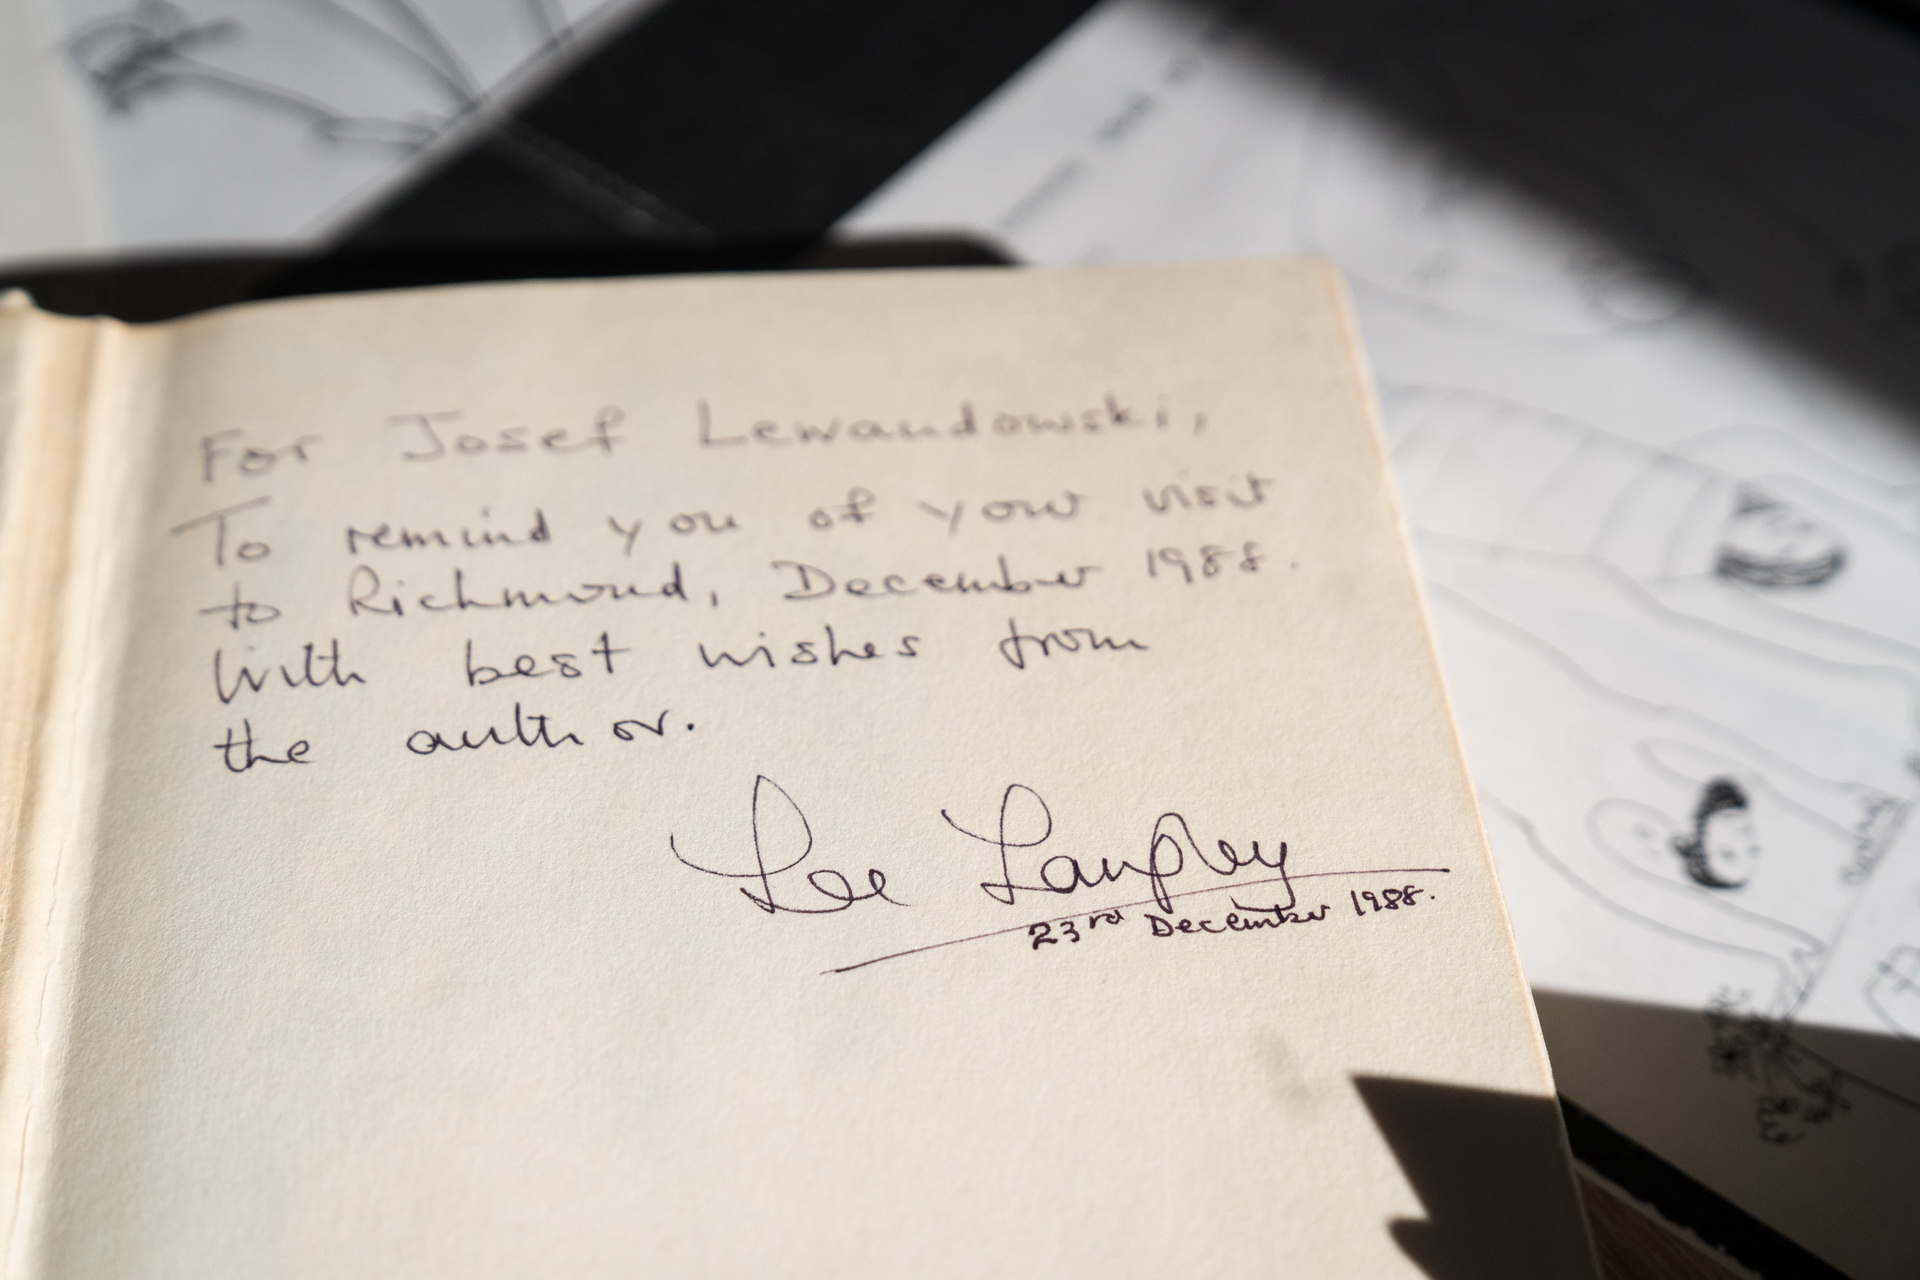 For Josef Lewandowski,
To remind you of your visit
to Richmond, December 1988.
With best wishes from
the author.
Lee Langley
23rd December 1988.